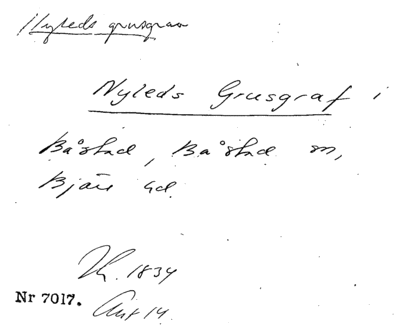 Nyleds grusgrav
Nyleds Grusgraf i
Båstad, Båstad sn,
Bjäre hd.
1834
Nr 7017.
Ant 14.